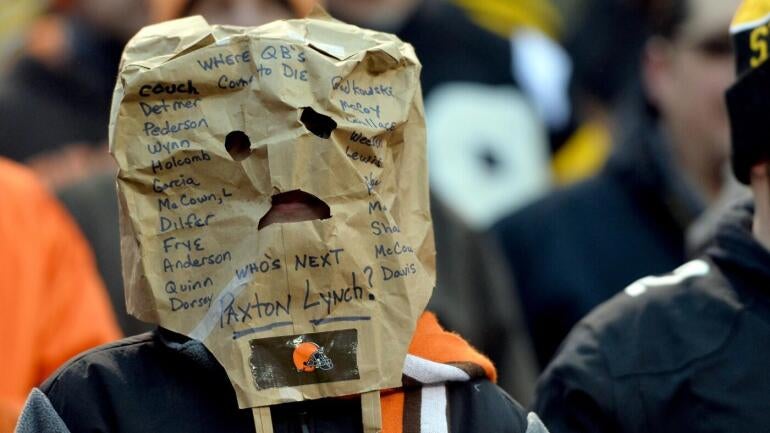 WHERE QB'S
COME TO DIE
COUCH
Detmer
Pederson
Wynn
Holcomb
Garcia
McCown, L
Dilfer
Frye
Anderson
Quinn
Dorsey
McCoy
Wallace
Lewis
Ma
Sha
McCou
Davis
WHO'S NEXT
PAXTON LYNCH?
S